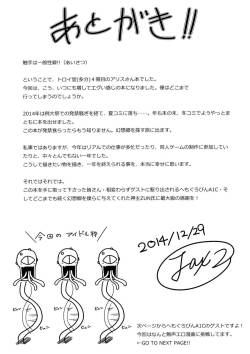 あとがき!!
触手は一般性癖!!（あいさつ）
ということで、トロイ堂(多分)4冊目のアリスさん本でした。
今回は、こう、いつにも増してエグい感じの本になりました。僕はどこまで
行ってしまうのでしょうか。
2014年は例大祭での発禁騒ぎを経て、夏コミに落ち……、冬も本の末、冬コミでようやっとま
ともに本を出すことができました。
この本が発禁食らったらもう知りません。幻想郷を探す旅に出ます。
私事ではありますが、今年はリアルでの仕事が多忙だったり、同人ゲームの制作に参加してい
たりと、かなり忙しい一年でした。
こうして描きたい物を描き、一年を終えられる事を、本当に幸せに思います。
それではそれでは。
この本を手に取って下さった皆さん・相変わらずゲストに取り出されるへもぐらびんA1C・そ
してどこまでも続く幻想郷を授からくれた神主ZUN氏に最大級の感謝を！
今回のアイドル枠
2014/12/29
Jax2
次ページからへもぐらびんA1Cのゲストですよ！
今回はなんと触声エロ漫画に挑戦してます。
←GO TO NEXT PAGE!!